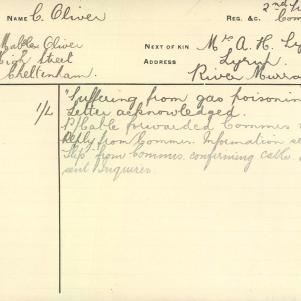 NAME C. Oliver REG. &C.
Oliver
High Street
Cheltenham.
NEXT OF KIN Mrs A. H.
ADDRESS Lyrup
River Murray
1/L "Suffering from gas poisoning
Letter acknowledged.
P/Cable forwarded Commrs
Reply from Commrs. Information
Slip from Commrs. confirming cable
and Enquirer.